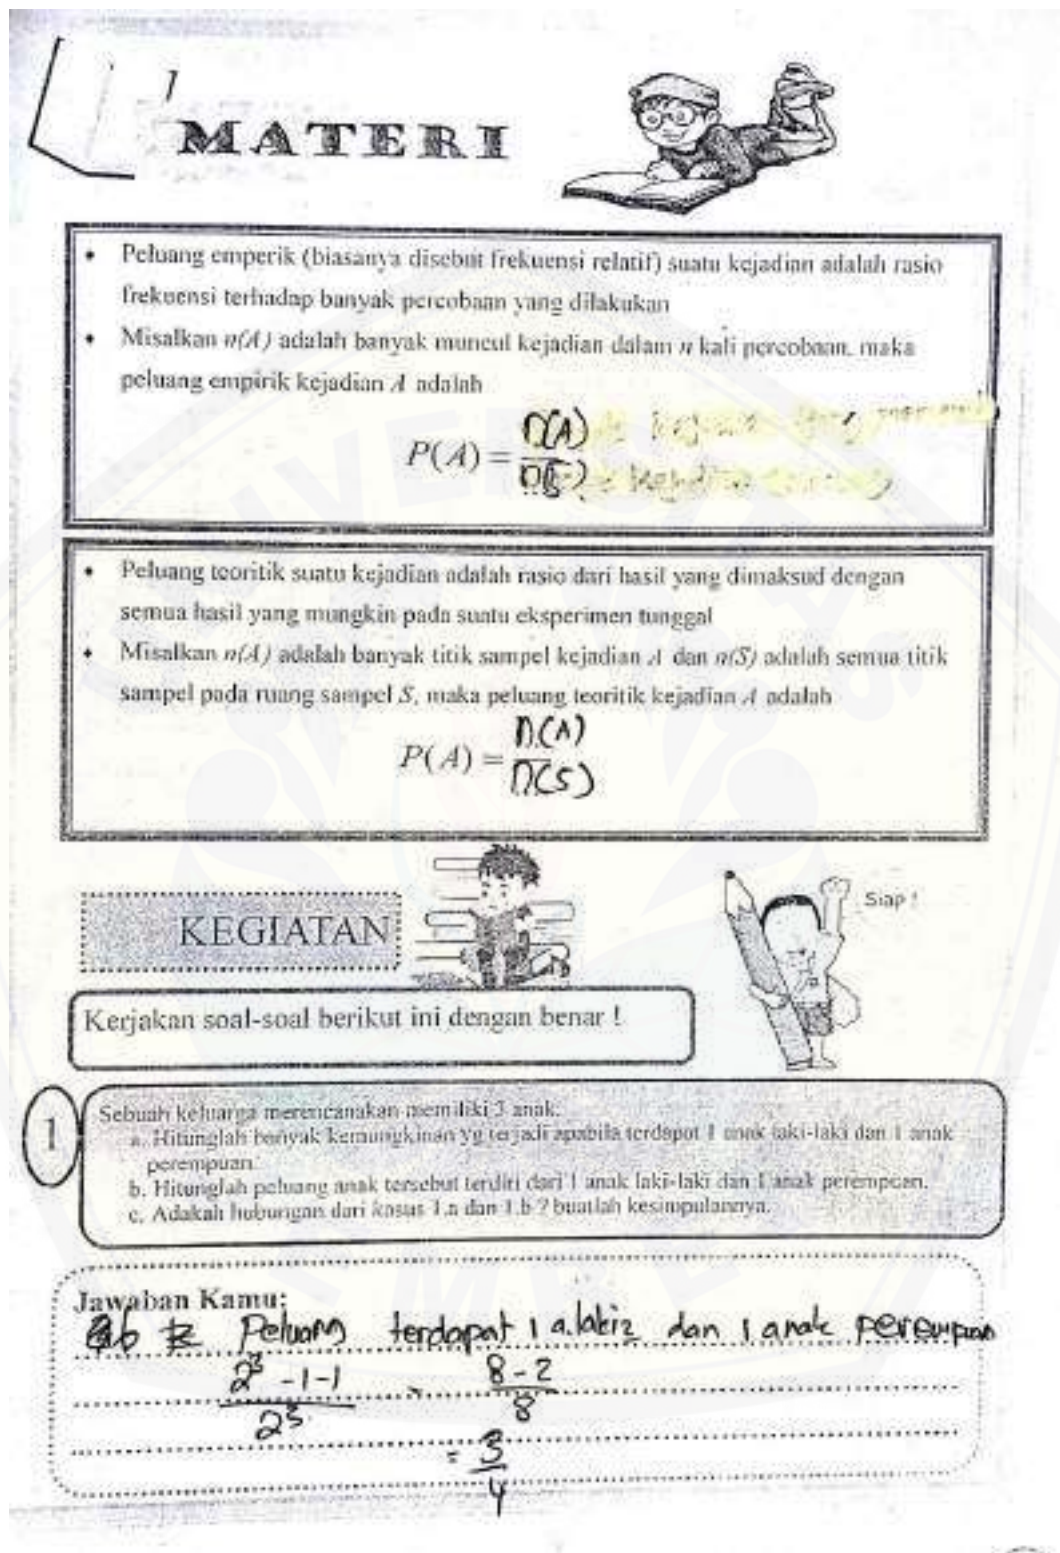 MATERI
• Peluang emperik (biasanya disebut frekuensi relatif) suatu kejadian adalah rasio
frekuensi terhadap banyak percobaan yang dilakukan
• Misalkan n(A) adalah banyak muncul kejadian dalam n kali percobaan, maka
peluang empirik kejadian A adalah
P(A) = n(A)
n(S)
• Peluang teoritik suatu kejadian adalah rasio dari hasil yang dimaksud dengan
semua hasil yang mungkin pada suatu eksperimen tunggal
• Misalkan n(A) adalah banyak titik sampel kejadian A dan n(S) adalah semua titik
sampel pada ruang sampel S, maka peluang teoritik kejadian A adalah
P(A) = n(A)
n(S)
Siap !
KEGIATAN
Kerjakan soal-soal berikut ini dengan benar !
1
Sebuah keluarga merencanakan memiliki 3 anak.
a. Hitunglah banyak kemungkinan yg terjadi apabila terdapat 1 anak laki-laki dan 1 anak
perempuan
b. Hitunglah peluang anak tersebut terdiri dari 1 anak laki-laki dan 1 anak perempuan.
c. Adakah hubungan dari kasus 1.a dan 1.b ? buatlah kesimpulannya.
Jawaban Kamu:
b Peluang terdapat 1 a.laki2 dan 1 anak perempuan
2³ -1-1 = 8-2
2³ 8
= 3
4